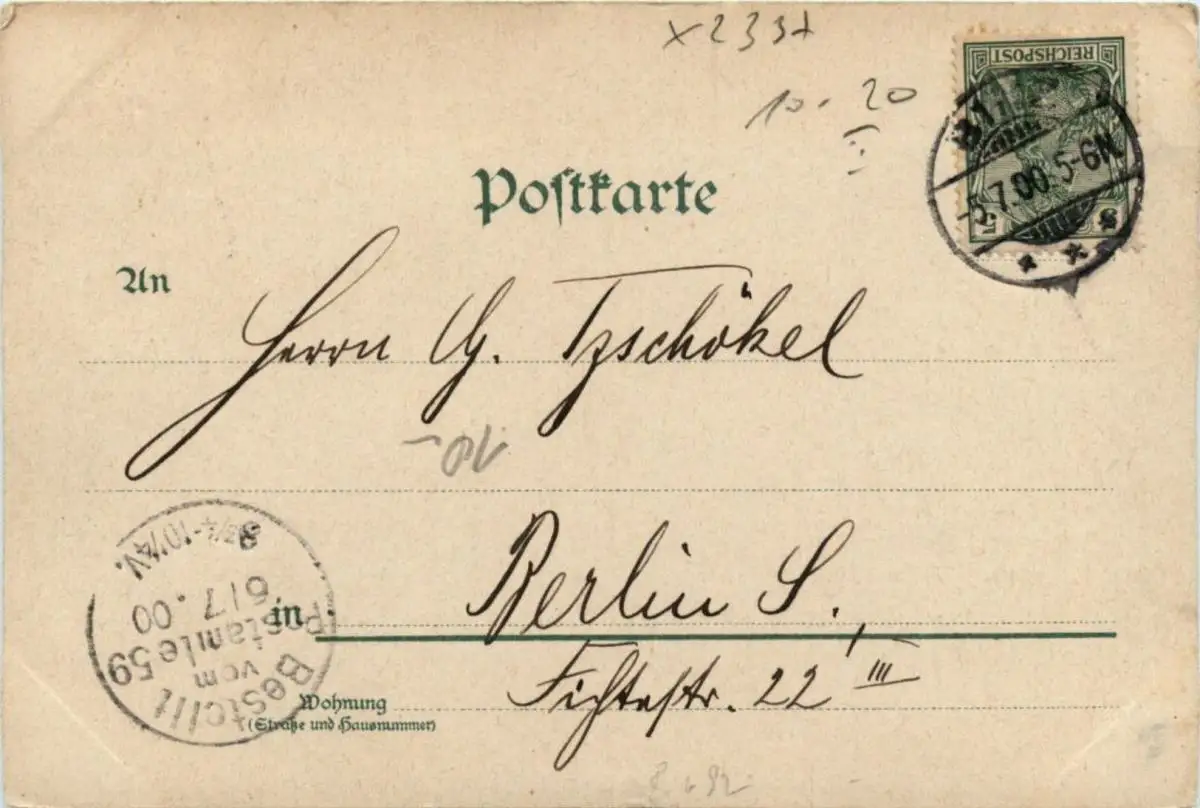 x 2337
10.- 20
REICHSPOST
-5.7.00.5-6N.
5
Postkarte
An
Herrn G. Tzschökel
in
Berlin S.
Fichtestr. 22 III
Wohnung
(Straße und Hausnummer)
Bestellt
vom
Postamte 59
6/7.00
9¾-10¼V.